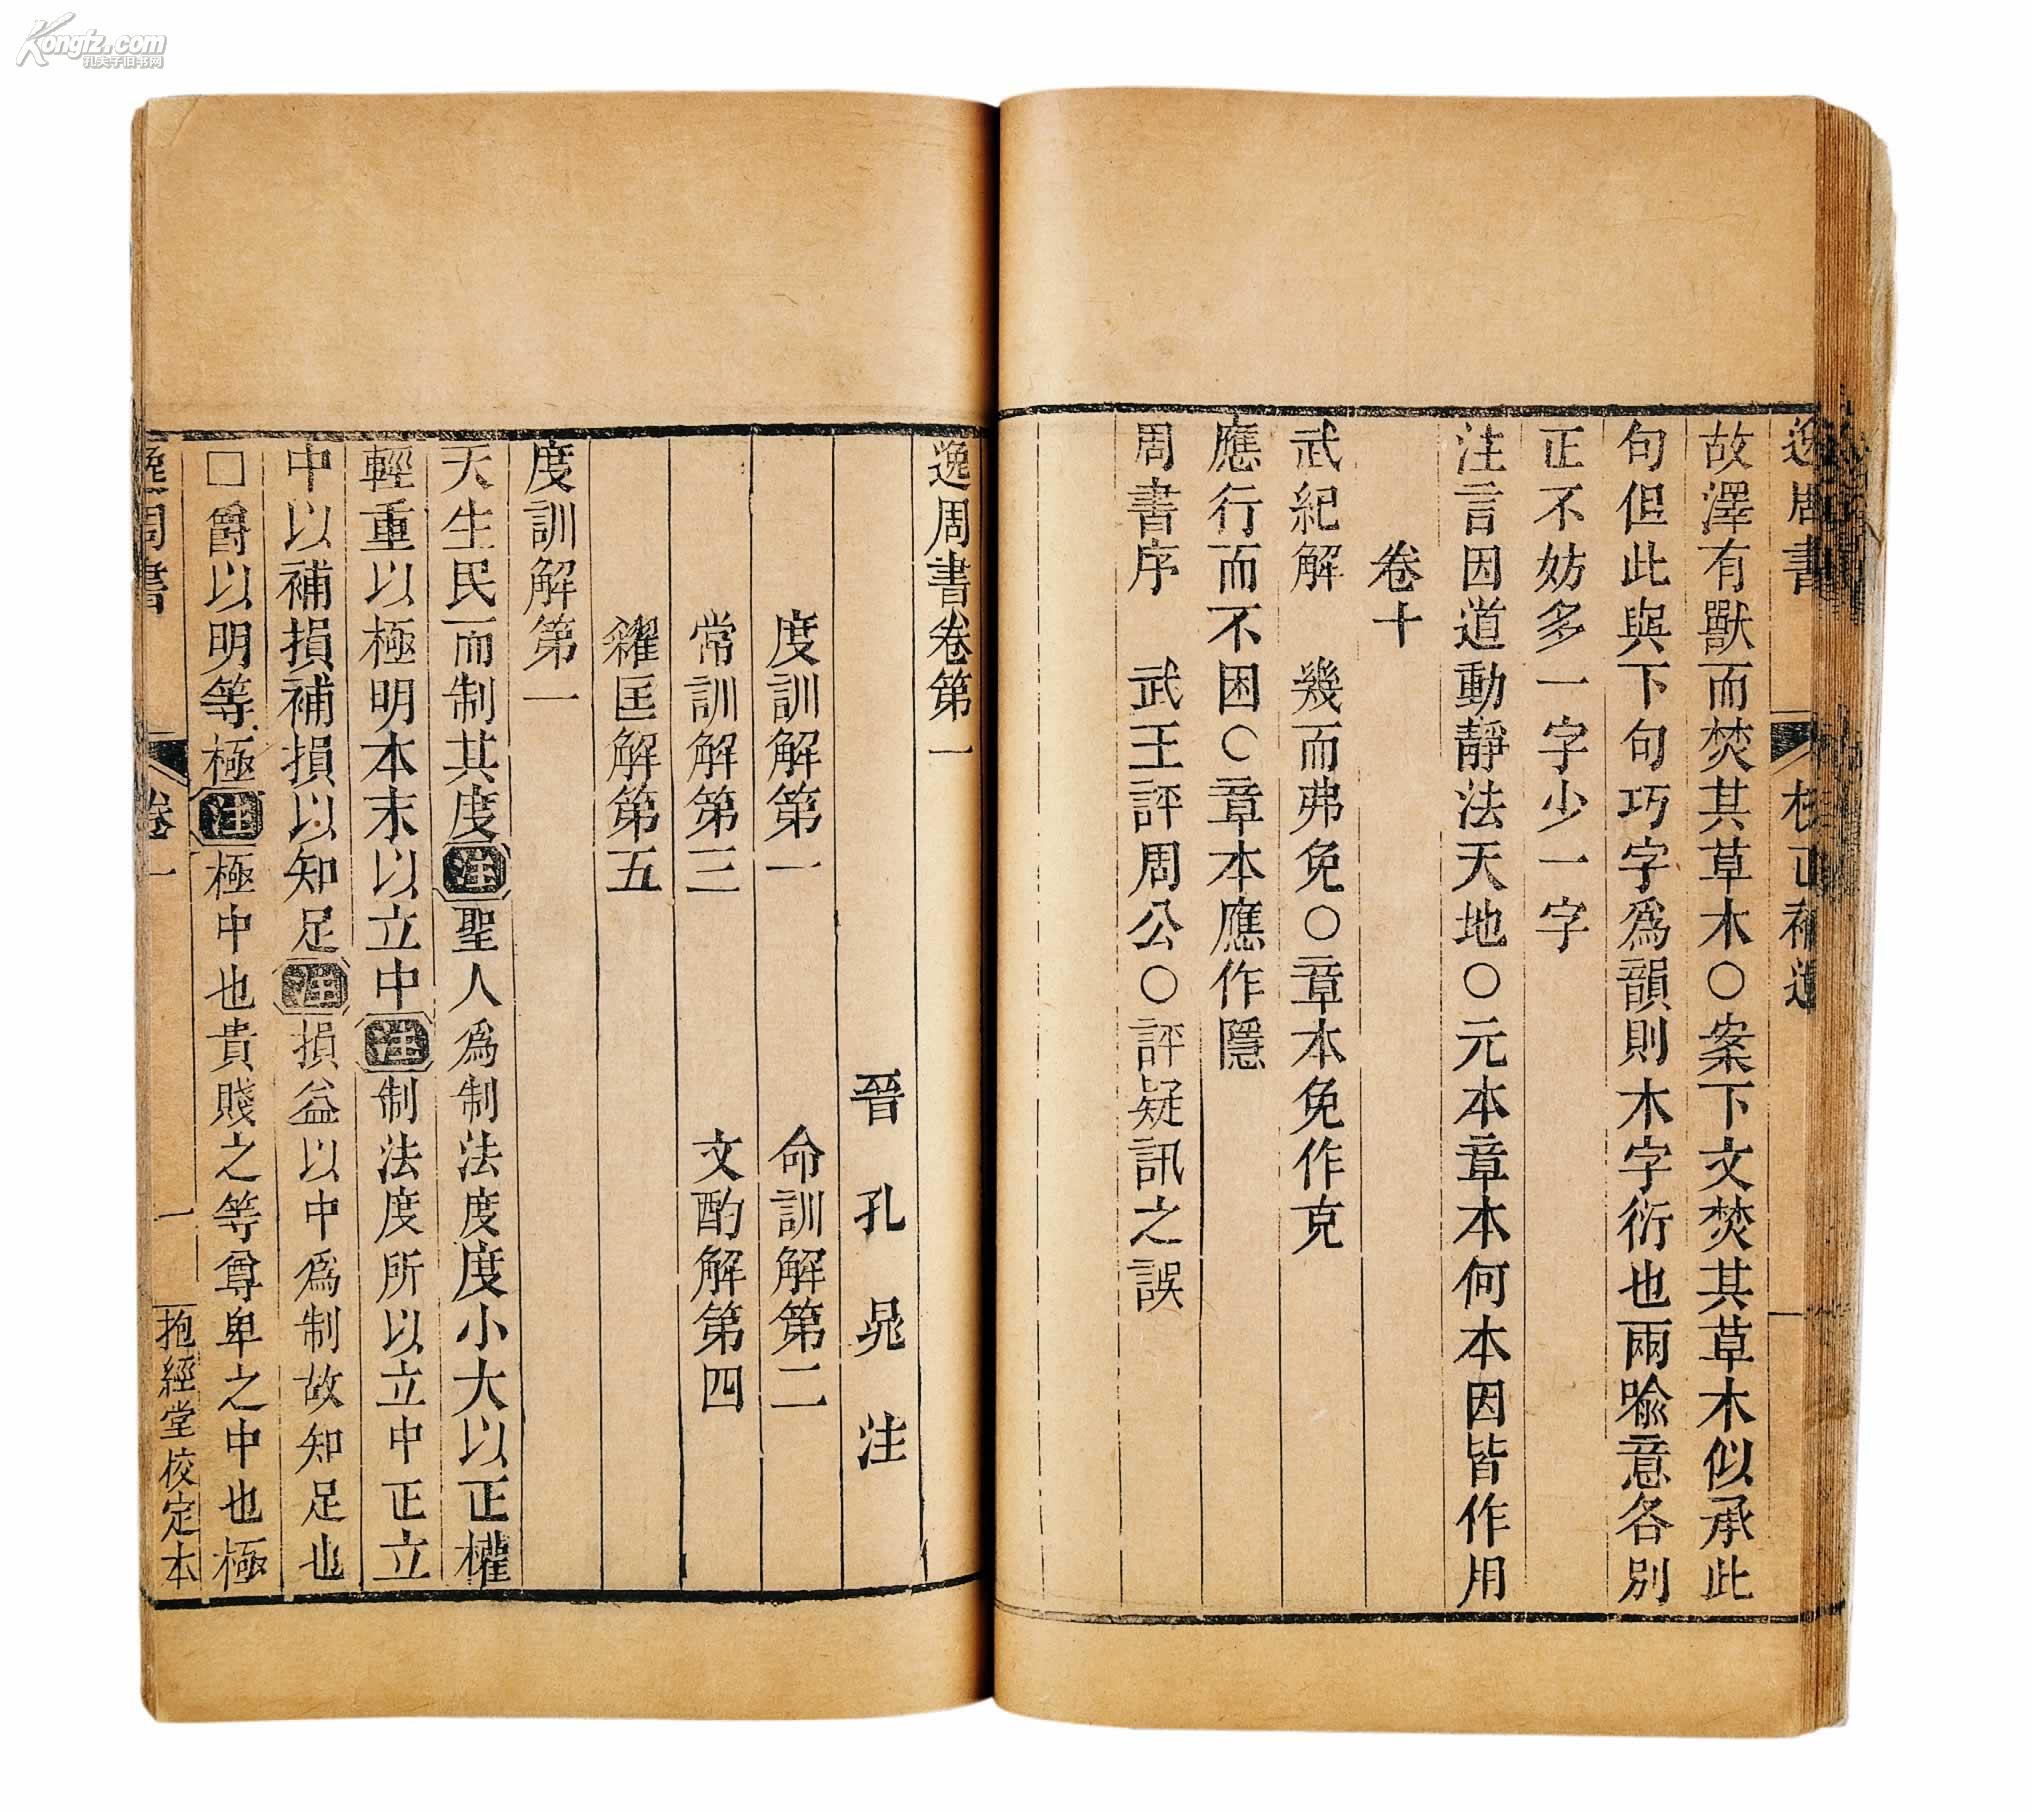 Kongfz.com
孔夫子旧书网
逸周書 校正補遺 一
故澤有獸而焚其草木〇案下文焚其草木似承此
句但此與下句巧字爲韻則木字衍也兩喻意各別
正不妨多一字少一字
注言因道動靜法天地〇元本章本何本因皆作用
卷十
武紀解 幾而弗免〇章本免作克
應行而不困〇章本應作隱
周書序 武王評周公〇評疑訊之誤
逸周書卷第一
晉孔晁注
度訓解第一 命訓解第二
常訓解第三 文酌解第四
糴匡解第五
度訓解第一
天生民而制其度注聖人爲制法度度小大以正權
輕重以極明本末以立中注制法度所以立中正立
中以補損補損以知足注損益以中爲制故知足也
□爵以明等極注極中也貴賤之等尊卑之中也極
逸周書 卷一 一 抱經堂校定本